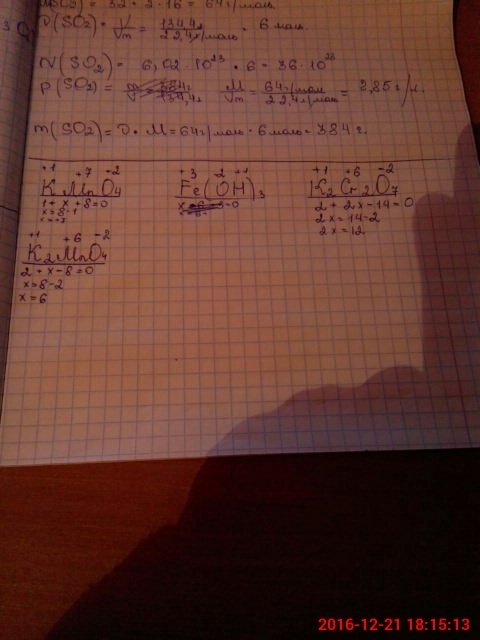 M(SO₂) = 32 + 2 · 16 = 64 г/моль
ν(SO₂) = V/Vm = 134,4л / 22,4л/моль = 6 моль.
N(SO₂) = 6,02 · 10²³ · 6 = 36 · 10²³
ρ(SO₂) = M/Vm = 64г/моль / 22,4л/моль = 2,85г/л.
m(SO₂) = ν · M = 64г/моль · 6моль = 384 г.
+1 +7 -2
KMnO₄
1 + x + 8 = 0
x = 8 - 1
x = +7
+3 -2 +1
Fe(OH)₃
+1 +6 -2
K₂Cr₂O₇
2 + 2x - 14 = 0
2x = 14 - 2
2x = 12
+1 +6 -2
K₂MnO₄
2 + x - 8 = 0
x = 8 - 2
x = 6
2016-12-21 18:15:13